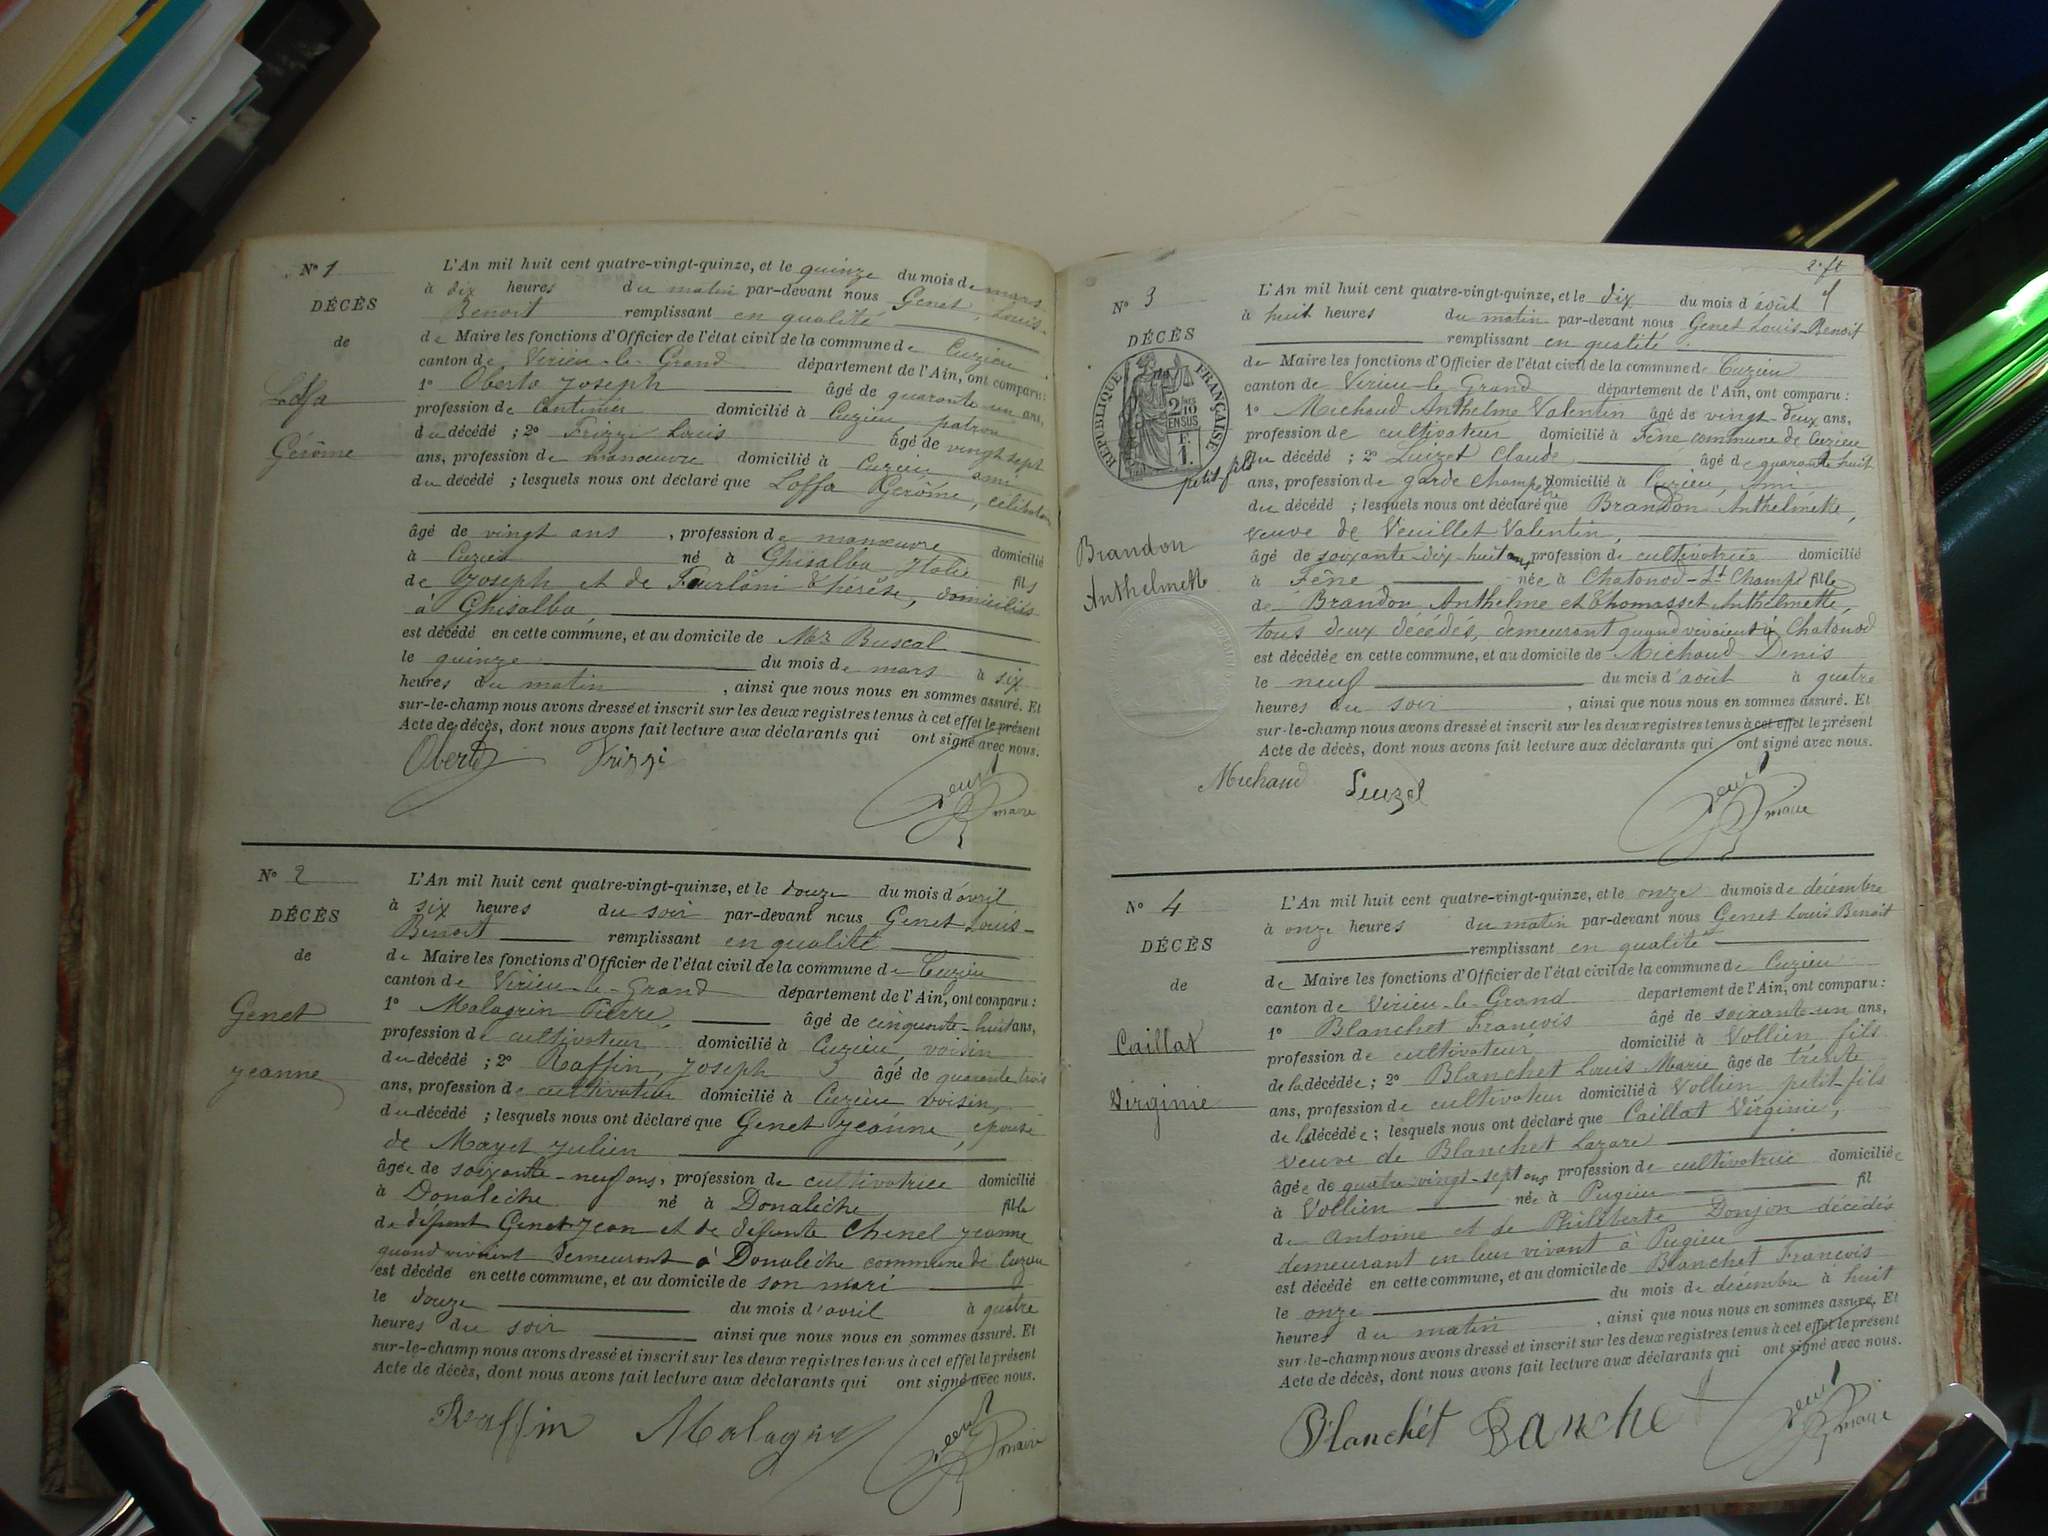 N° 1
DÉCÈS
de
Loffa
Gérôme
L'An mil huit cent quatre-vingt-quinze, et le quinze du mois de mars
à dix heures du matin par-devant nous Genet, Louis-
Benoit remplissant en qualité
de Maire les fonctions d'Officier de l'état civil de la commune de Cuzieu
canton de Virieu-le-Grand département de l'Ain, ont comparu :
1° Oberto Joseph âgé de quarante-un ans,
profession de Cantinier domicilié à Cuzieu, patron
du décédé ; 2° Frizzi Louis âgé de vingt sept
ans, profession de manœuvre domicilié à Cuzieu ami
du décédé ; lesquels nous ont déclaré que Loffa Gérôme, célibataire
âgé de vingt ans , profession de manœuvre domicilié
à Cuzieu né à Ghisalba Italie fils
de Joseph et de Fourloni Thérèse, domiciliés
à Ghisalba,
est décédé en cette commune, et au domicile de Buscal
le quinze du mois de mars à six
heures du matin , ainsi que nous nous en sommes assuré. Et
sur-le-champ nous avons dressé et inscrit sur les deux registres tenus à cet effet le présent
Acte de décès, dont nous avons fait lecture aux déclarants qui ont signé avec nous.
Oberto Frizzi
Genet
maire
N° 2
DÉCÈS
de
Genet
Jeanne
L'An mil huit cent quatre-vingt-quinze, et le douze du mois d'avril
à six heures du soir par-devant nous Genet Louis-
Benoit remplissant en qualité
de Maire les fonctions d'Officier de l'état civil de la commune de Cuzieu
canton de Virieu-le-Grand département de l'Ain, ont comparu :
1° Malagrin Pierre, âgé de cinquante-huit ans,
profession de cultivateur domicilié à Cuzieu, voisin
du décédé ; 2° Raffin, Joseph âgé de quarante trois
ans, profession de cultivateur domicilié à Cuzieu voisin,
du décédé ; lesquels nous ont déclaré que Genet Jeanne, épouse
de Mayet Julien
âgée de soixante-neuf ans, profession de cultivatrice domicilié
à Donalèche né à Donalèche fille
de défunt Genet Jean et de défunte Chenel Jeanne
quand vivaient demeurant à Donalèche commune de Cuzieu
est décédé en cette commune, et au domicile de son mari
le douze du mois d'avril à quatre
heures du soir ainsi que nous nous en sommes assuré. Et
sur-le-champ nous avons dressé et inscrit sur les deux registres tenus à cet effet le présent
Acte de décès, dont nous avons fait lecture aux déclarants qui ont signé avec nous.
Raffin Malagrin
Genet
maire
2e ft
N° 3
DÉCÈS
RÉPUBLIQUE FRANÇAISE
2 10
EN SUS
F.
1.
petit-fils
Brandon
Anthelmette
L'An mil huit cent quatre-vingt-quinze, et le dix du mois d'août
à huit heures du matin par-devant nous Genet Louis-Benoit
remplissant en qualité
de Maire les fonctions d'Officier de l'état civil de la commune de Cuzieu
canton de Virieu-le Grand département de l'Ain, ont comparu :
1° Michaud Anthelme Valentin âgé de vingt-deux ans,
profession de cultivateur domicilié à Fêne commune de Cuzieu
du décédé ; 2° Luizet Claude âgé de quarante huit
ans, profession de garde champêtre domicilié à Cuzieu, Ami
du décédé ; lesquels nous ont déclaré que Brandon Anthelmette,
veuve de Veuillet Valentin,
âgé de soixante-dix huit ans profession de cultivatrice domicilié
à Fêne née à Chatonod-St Champ fille
de Brandon Anthelme et Thomasset Anthelmette,
tous deux décédés, demeurant quand vivaient à Chatonod
est décédée en cette commune, et au domicile de Michaud Denis
le neuf du mois d'août à quatre
heures du soir , ainsi que nous nous en sommes assuré. Et
sur-le-champ nous avons dressé et inscrit sur les deux registres tenus à cet effet le présent
Acte de décès, dont nous avons fait lecture aux déclarants qui ont signé avec nous.
Michaud Luizet
Genet
maire
N° 4
DÉCÈS
de
Caillat
Virginie
L'An mil huit cent quatre-vingt-quinze, et le onze du mois de décembre
à onze heures du matin par-devant nous Genet Louis Benoit
remplissant en qualité
de Maire les fonctions d'Officier de l'état civil de la commune de Cuzieu
canton de Virieu-le-Grand département de l'Ain, ont comparu :
1° Blanchet François âgé de soixante-un ans,
profession de cultivateur domicilié à Vollien fils
de la décédée ; 2° Blanchet Louis Marie âgé de trente
ans, profession de cultivateur domicilié à Vollien petit-fils
de la décédée ; lesquels nous ont déclaré que Caillat Virginie,
veuve de Blanchet Lazare
âgée de quatre vingt-sept ans profession de cultivatrice domiciliée
à Vollien née à Pugieu fil
de Antoine et de Philiberte Donjon décédés
demeurant en leur vivant à Pugieu
est décédé en cette commune, et au domicile de Blanchet François
le onze du mois de décembre à huit
heures du matin , ainsi que nous nous en sommes assuré. Et
sur-le-champ nous avons dressé et inscrit sur les deux registres tenus à cet effet le présent
Acte de décès, dont nous avons fait lecture aux déclarants qui ont signé avec nous.
Blanchet Blanchet
Genet
maire